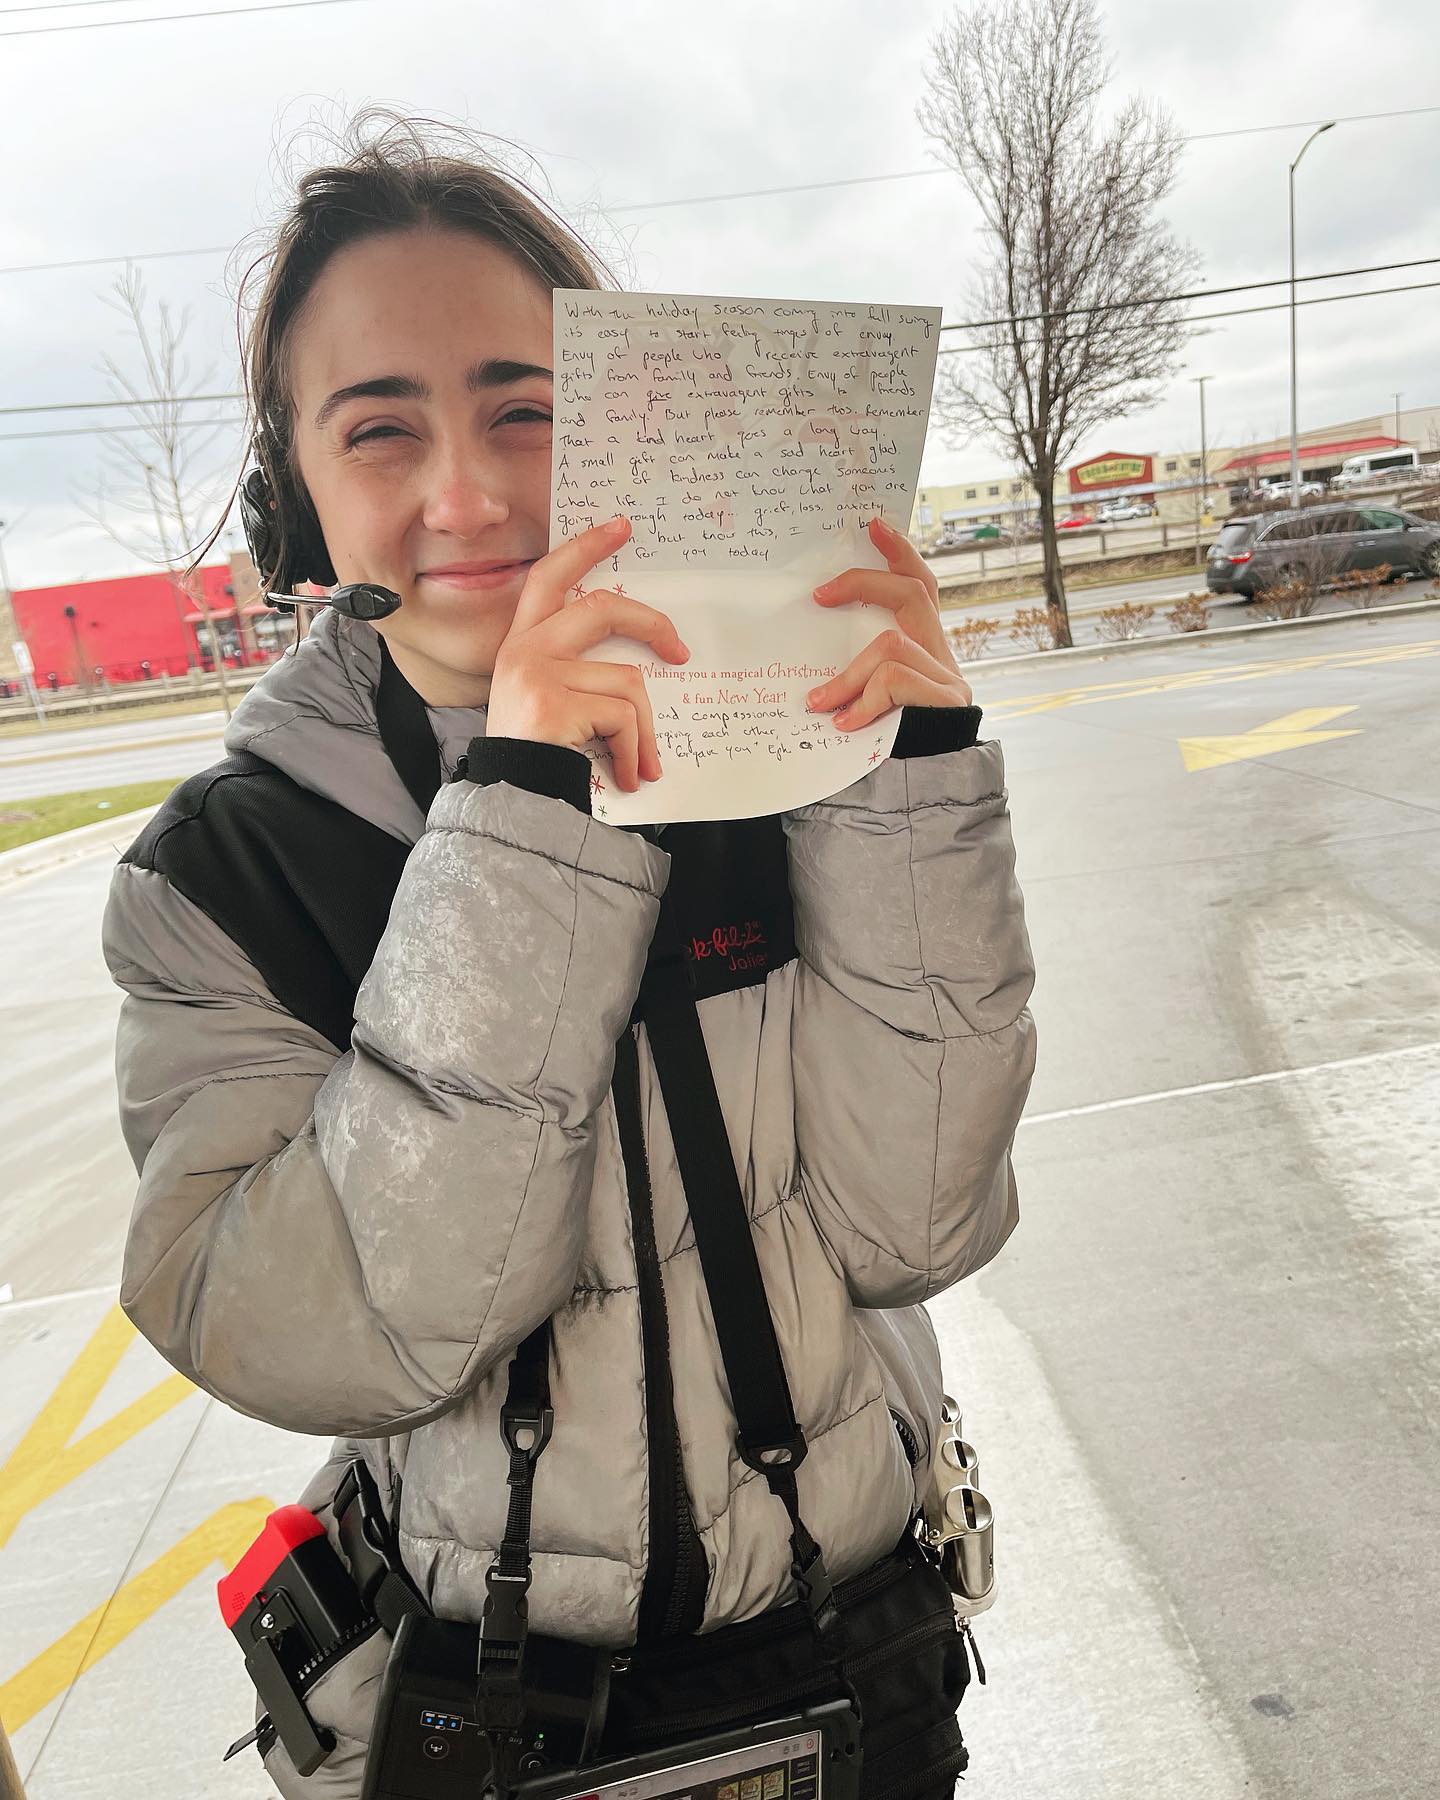 With the holiday season coming into full swing
it's easy to start feeling tinges of envy.
Envy of people who receive extravagent
gifts from family and friends. Envy of people
who can give extravagent gifts to friends
and family. But please remember this. Remember
that a kind heart goes a long way.
A small gift can make a sad heart glad.
An act of kindness can change someone's
whole life. I do not know what you are
going through today... grief, loss, anxiety,
but know this, I will be
for you today
Wishing you a magical Christmas
& fun New Year!
and compassionate to
forgiving each other, just
forgave you" Eph. 4:32
k-fil-
Jolie